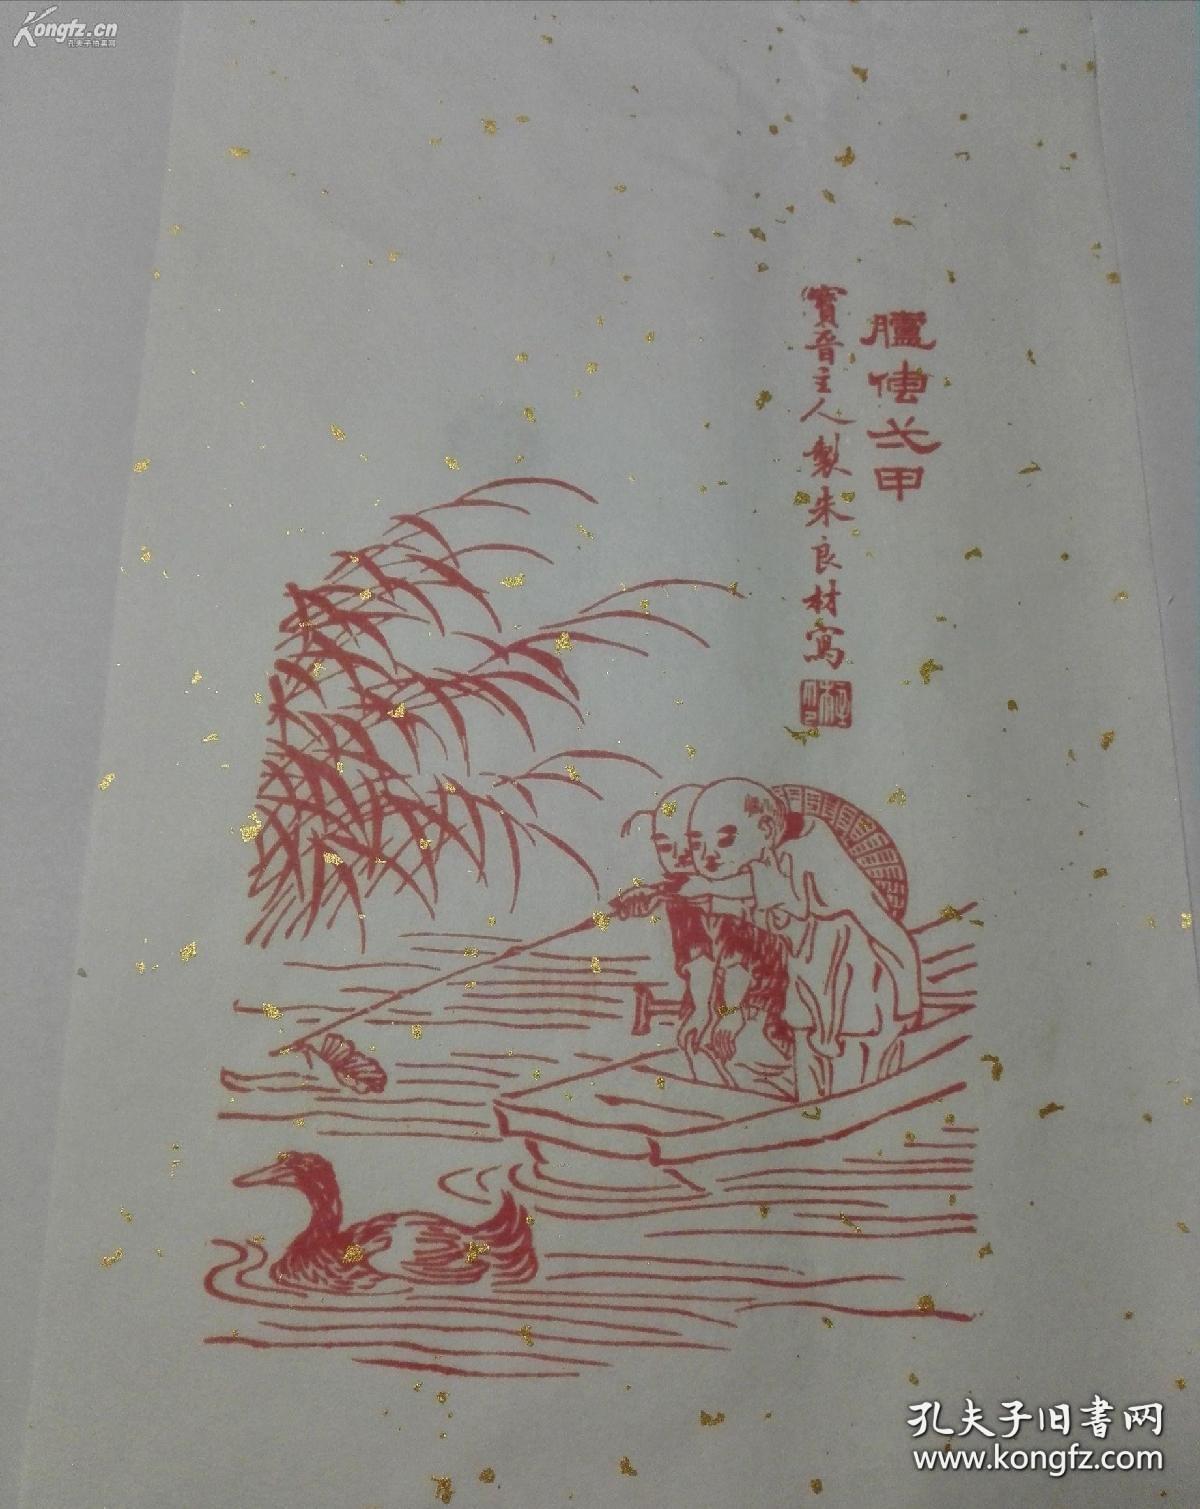 Kongfz.cn
孔夫子拍卖网
臚傳弌甲
寶晋主人製朱良材寫
孔夫子旧書网
www.kongfz.com